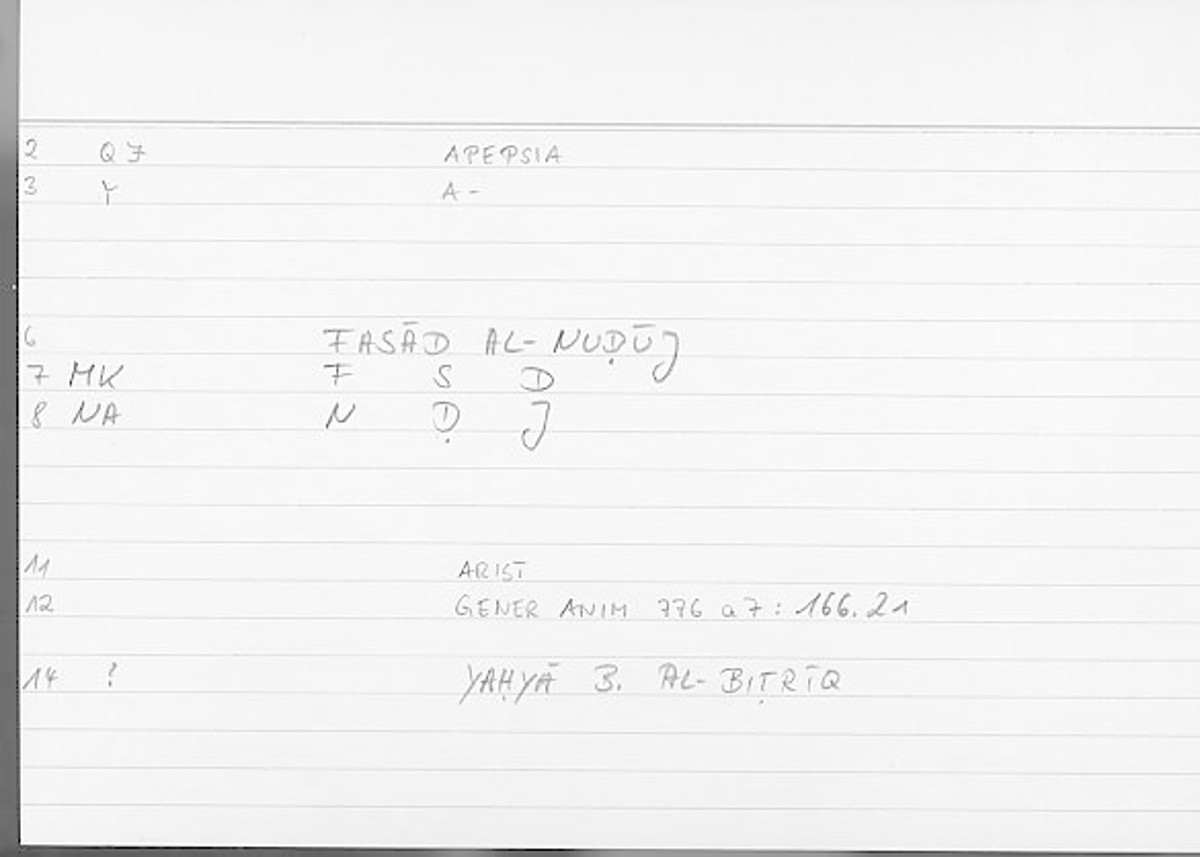 2 QF APEPSIA
3 Y A-
6 FASĀD AL-NUḌŪJ
7 MK F S D
8 NA N Ḍ J
11 ARIST
12 GENER ANIM 776 a7: 166.21
14 ? YAḤYĀ B. AL-BIṬRĪQ